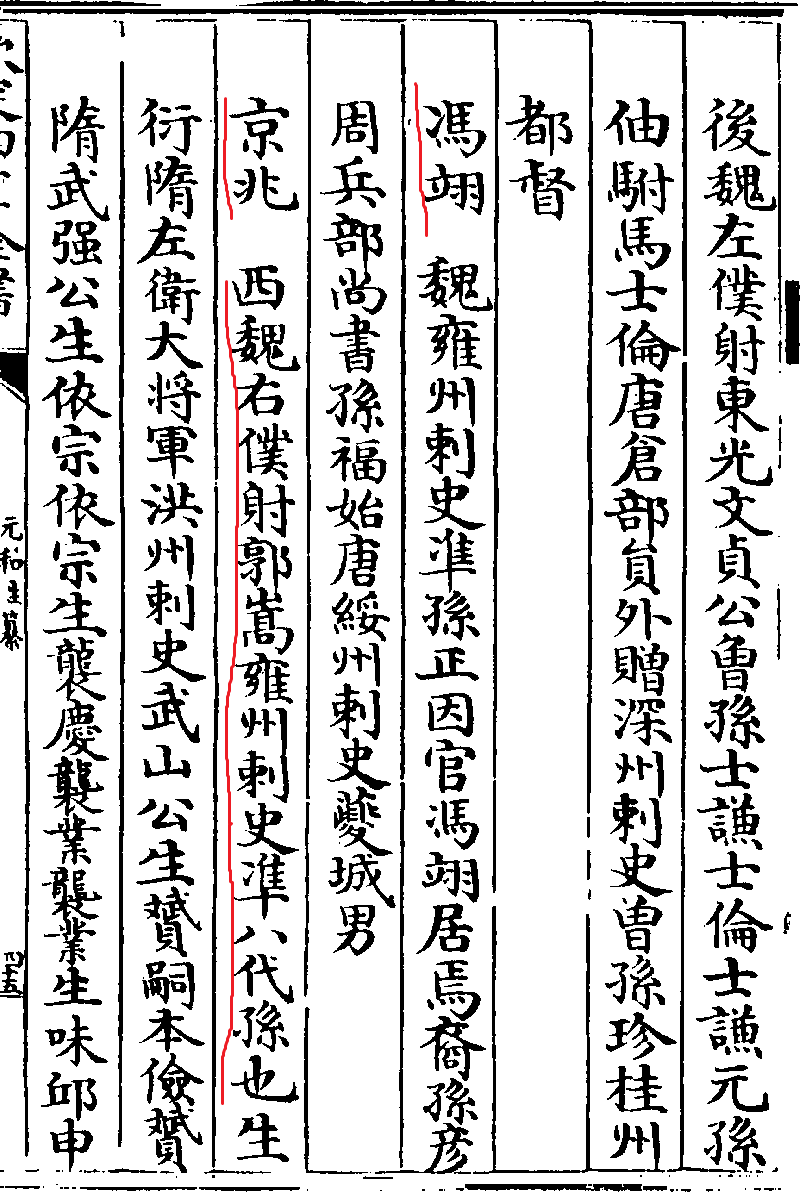 後魏左僕射東光文貞公魯孫士謙士倫士謙元孫
伷駙馬士倫唐倉部員外贈深州刺史曾孫珍桂州
都督
馮翊 魏雍州刺史凖孫正因官馮翊居焉裔孫彦
周兵部尚書孫福始唐綏州刺史夔城男
京兆 西魏右僕射郭嵩雍州刺史凖八代孫也生
衍隋左衛大将軍洪州刺史武山公生贇嗣本儉贇
隋武强公生依宗依宗生襲慶襲業襲業生味邱申
元和生纂
四十五